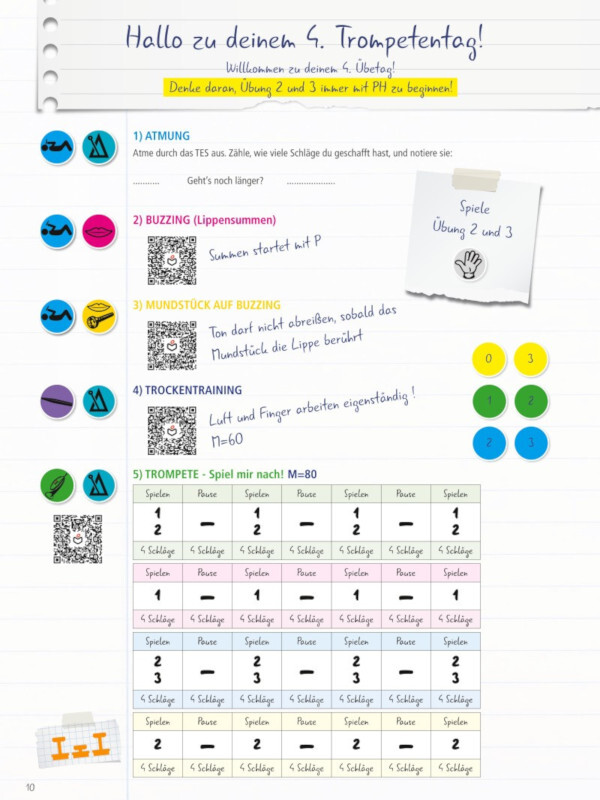 Hallo zu deinem 4. Trompetentag!
Willkommen zu deinem 4. Übetag!
Denke daran, Übung 2 und 3 immer mit PH zu beginnen!
1) ATMUNG
Atme durch das TES aus. Zähle, wie viele Schläge du geschafft hast, und notiere sie:
........... Geht's noch länger? ....................
Spiele
Übung 2 und 3
2) BUZZING (Lippensummen)
Summen startet mit P
3) MUNDSTÜCK AUF BUZZING
Ton darf nicht abreißen, sobald das
Mundstück die Lippe berührt
0 3
1 2
2 3
4) TROCKENTRAINING
Luft und Finger arbeiten eigenständig!
M=60
5) TROMPETE - Spiel mir nach! M=80
Spielen Pause Spielen Pause Spielen Pause Spielen
1 – 1 – 1 – 1
2 2 2 2
4 Schläge 4 Schläge 4 Schläge 4 Schläge 4 Schläge 4 Schläge 4 Schläge
Spielen Pause Spielen Pause Spielen Pause Spielen
1 – 1 – 1 – 1
4 Schläge 4 Schläge 4 Schläge 4 Schläge 4 Schläge 4 Schläge 4 Schläge
Spielen Pause Spielen Pause Spielen Pause Spielen
2 – 2 – 2 – 2
3 3 3 3
4 Schläge 4 Schläge 4 Schläge 4 Schläge 4 Schläge 4 Schläge 4 Schläge
Spielen Pause Spielen Pause Spielen Pause Spielen
2 – 2 – 2 – 2
4 Schläge 4 Schläge 4 Schläge 4 Schläge 4 Schläge 4 Schläge 4 Schläge
10